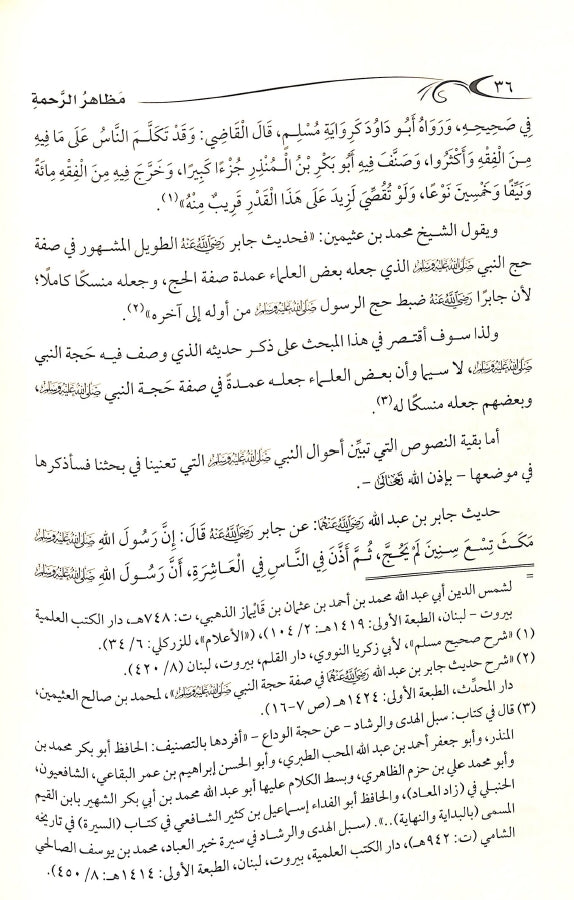 ٣٦
مظاهر الرَّحمةِ
فِي صَحِيحِهِ، وَرَوَاهُ أَبُو دَاوُدَ كَرِوَايَةِ مُسْلِمٍ، قَالَ الْقَاضِي: وَقَدْ تَكَلَّمَ النَّاسُ عَلَى مَا فِيهِ
مِنَ الْفِقْهِ وَأَكْثَرُوا، وَصَنَّفَ فِيهِ أَبُو بَكْرِ بْنُ الْمُنْذِرِ جُزْءًا كَبِيرًا، وَخَرَّجَ فِيهِ مِنَ الْفِقْهِ مِائَةً
وَنَيِّفًا وَخَمْسِينَ نَوْعًا، وَلَوْ تُقُصِّيَ لَزِيدَ عَلَى هَذَا الْقَدْرِ قَرِيبٌ مِنْهُ»(١).
ويقول الشيخ محمد بن عثيمين: «فحديث جابر رَضِيَ اللَّهُ عَنْهُ الطويل المشهور في صفة
حج النبي صَلَّى اللَّهُ عَلَيْهِ وَسَلَّمَ الذي جعله بعض العلماء عمدة صفة الحج، وجعله منسكًا كاملًا؛
لأن جابرًا رَضِيَ اللَّهُ عَنْهُ ضبط حج الرسول صَلَّى اللَّهُ عَلَيْهِ وَسَلَّمَ من أوله إلى آخره»(٢).
ولذا سوف أقتصر في هذا المبحث على ذكر حديثه الذي وصف فيه حَجة النبي
صَلَّى اللَّهُ عَلَيْهِ وَسَلَّمَ، لا سيما وأن بعض العلماء جعله عمدةً في صفة حَجة النبي صَلَّى اللَّهُ عَلَيْهِ وَسَلَّمَ،
وبعضهم جعله منسكًا له(٣).
أما بقية النصوص التي تبيِّن أحوال النبي صَلَّى اللَّهُ عَلَيْهِ وَسَلَّمَ التي تعنينا في بحثنا فسأذكرها
في موضعها - بإذن الله تَعَالَى -.
حديث جابر بن عبد الله رَضِيَ اللَّهُ عَنْهُمَا: عن جابر رَضِيَ اللَّهُ عَنْهُ قَالَ: إِنَّ رَسُولَ اللهِ صَلَّى اللَّهُ عَلَيْهِ وَسَلَّمَ
مَكَثَ تِسْعَ سِنِينَ لَمْ يَحُجَّ، ثُمَّ أَذَّنَ فِي النَّاسِ فِي الْعَاشِرَةِ، أَنَّ رَسُولَ اللهِ صَلَّى اللَّهُ عَلَيْهِ وَسَلَّمَ
=
لشمس الدين أبي عبد الله محمد بن أحمد بن عثمان بن قايماز الذهبي، ت: ٧٤٨هـ، دار الكتب العلمية
بيروت - لبنان، الطبعة الأولى: ١٤١٩هـ: ٢/ ١٠٤)، («الأعلام»، للزركلي: ٦/ ٣٤).
(١) «شرح صحيح مسلم»، لأبي زكريا النووي، دار القلم، بيروت، لبنان (٨/ ٤٢٠).
(٢) «شرح حديث جابر بن عبد الله رَضِيَ اللَّهُ عَنْهُمَا في صفة حجة النبي صَلَّى اللَّهُ عَلَيْهِ وَسَلَّمَ»، لمحمد بن صالح العثيمين،
دار المحدِّث، الطبعة الأولى: ١٤٢٤هـ (ص ٧-١٦).
(٣) قال في كتاب: سبل الهدى والرشاد - عن حجة الوداع - «أفردها بالتصنيف: الحافظ أبو بكر محمد بن
المنذر، وأبو جعفر أحمد بن عبد الله المحب الطبري، وأبو الحسن إبراهيم بن عمر البقاعي، الشافعيون،
وأبو محمد علي بن حزم الظاهري، وبسط الكلام عليها أبو عبد الله محمد بن أبي بكر الشهير بابن القيم
الحنبلي في (زاد المعاد)، والحافظ أبو الفداء إسماعيل بن كثير الشافعي في كتاب (السيرة) في تاريخه
المسمى (بالبداية والنهاية)...». (سبل الهدى والرشاد في سيرة خير العباد، محمد بن يوسف الصالحي
الشامي (ت: ٩٤٢هـ)، دار الكتب العلمية، بيروت، لبنان، الطبعة الأولى: ١٤١٤هـ: ٨/ ٤٥٠).